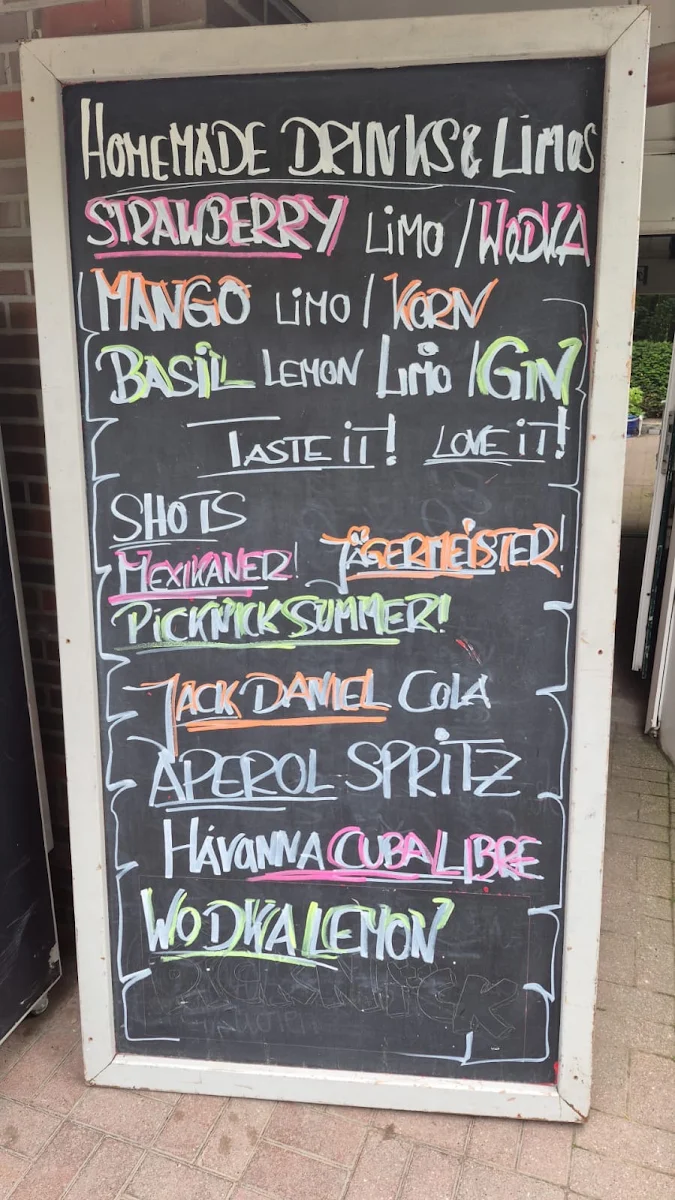 HOMEMADE DRINKS & LiMOS
STRAWBERRY LiMO / WODKA
MANGO LiMO / KORN
BASiL LEMON LiMO / GiN
TASTE iT! LOVE iT!
SHOTS
MEXIKANER! JÄGERMEiSTER!
PiCKNiCK SUMMER!
JACK DANIEL COLA
APEROL SPRiTZ
HÁVANNA CUBA LIBRE
WODKA LEMON
PiCKNiCK